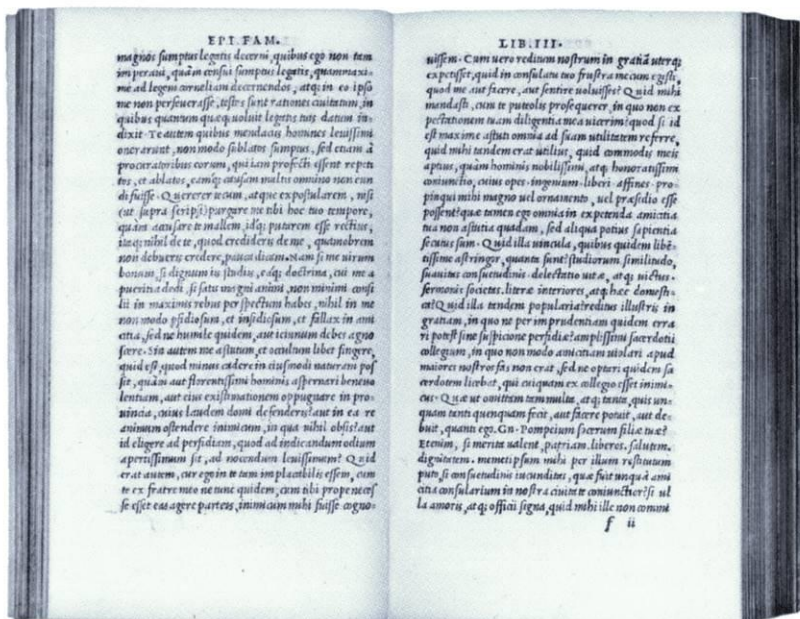 EPI. FAM.
magnos sumptus legatis decerni, quibus ego non tam
imperaui, quàm censui sumptus legatis, quàm maxi-
me ad legem corneliam decernendos, atq; in eo ipso
me non perseuerasse, testes sunt rationes ciuitatum, in
quibus quantum quæq; uoluit legatis tuis datum in-
duxit. Te autem quibus mendaciis homines leuissimi
onerarunt, non modo sublatos sumptus, sed etiam à
procuratoribus eorum, qui iam profecti essent repeti
tos, et ablatos, eamq; causam multis omnino non eun
di fuisse. Quererer tecum, atque expostularem, nisi
(ut supra scripsi) purgare me tibi hoc tuo tempore,
quàm accusare te mallem, idq; putarem esse rectius,
itaq; nihil de te, quod credideris de me, quamobrem
non debueris credere, pauca dicam. Nam si me uirum
bonum, si dignum iis studiis, eaq; doctrina, cui me a
pueritia dedi, si satis magni animi, non minimi consi
lii in maximis rebus perspectum habes, nihil in me
non modo pfidiosum, et insidiosum, et fallax in ami
citia, sed ne humile quidem, aut ieiunum debes agno
scere. Sin autem me astutum, et occultum libet fingere,
quid est, quod minus cadere in eiusmodi naturam pos
sit, quàm aut florentissimi hominis aspernari beneuo
lentiam, aut eius existimationem oppugnare in pro-
uincia, cuius laudem domi defenderis? aut in ea re
animum ostendere inimicum, in qua nihil obsis? aut
id eligere ad perfidiam, quod ad indicandum odium
apertissimum sit, ad nocendum leuissimum? Quid
erat autem, cur ego in te tam implacabilis essem, cum
te ex fratre meo ne tunc quidem, cum tibi prope neces
se esset eas agere parteis, inimicum mihi fuisse cogno-
LIB. III.
uissem. Cum uero reditum nostrum in gratiã uterq;
expetisset, quid in consulatu tuo frustra mecum egisti,
quod me aut facere, aut sentire uoluisses? Quid mihi
mandasti, cum te puteolis prosequerer, in quo non ex
pectationem tuam diligentia mea uicerim? quod si id
est maxime astuti omnia ad suam utilitatem referre,
quid mihi tandem erat utilius, quid commodis meis
aptius, quàm hominis nobilissimi, atq; honoratissimi
coniunctio, cuius opes. ingenium. liberi. affines. pro-
pinqui mihi magno uel ornamento, uel præsidio esse
possent? quæ tamen ego omnia in expetenda amicitia
tua non astutia quadam, sed aliqua potius sapientia
secutus sum. Quid illa uincula, quibus quidem libẽ-
tissime astringor, quanta sunt? studiorum similitudo,
suauitas consuetudinis. delectatio uitæ, atq; uictus.
sermonis societas. literæ interiores, atq; hæc domesti-
ca? Quid illa tandem popularia? reditus illustris in
gratiam, in quo ne per imprudentiam quidem erra
ri potest sine suspicione perfidiæ? amplissimi sacerdotii
collegium, in quo non modo amicitiam uiolari apud
maiores nostros fas non erat, sed ne optari quidem sa
cerdotem licebat, qui cuiquam ex collegio esset inimi-
cus. Quæ ut omittam tam multa, atq; tanta, quis un-
quam tanti quenquam fecit, aut facere potuit, aut de-
buit, quanti ego. Gn. Pompeium socerum filiæ tuæ?
Etenim, si merita ualent, patriam. liberos. salutem.
dignitatem. memetipsum mihi per illum restitutum
puto, si consuetudinis iucunditas, quæ fuit unquã ami
citia consularium in nostra ciuitate coniunctior? si il
la amoris, atq; officii signa, quid mihi ille non commi
f ii